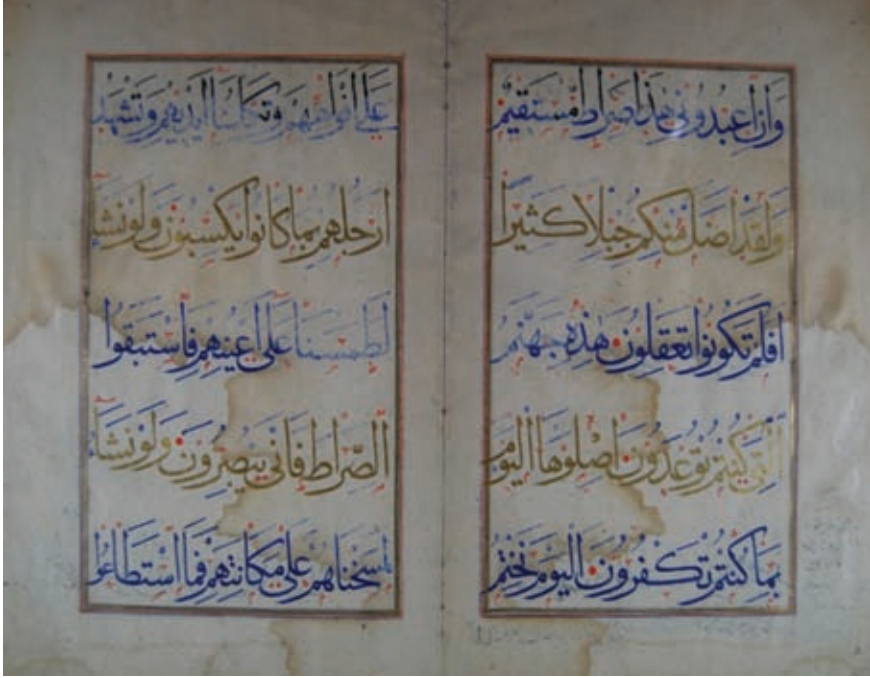 وَاَنِ اعْبُدُونِى هٰذَا صِرَاطٌ مُسْتَقِيمٌ
وَلَقَدْ اَضَلَّ مِنْكُمْ جِبِلًّا كَثِيرًا
اَفَلَمْ تَكُونُوا تَعْقِلُونَ هٰذِهِ جَهَنَّمُ
الَّتِى كُنْتُمْ تُوعَدُونَ اِصْلَوْهَا الْيَوْمَ
بِمَا كُنْتُمْ تَكْفُرُونَ اَلْيَوْمَ نَخْتِمُ
عَلٰى اَفْوَاهِهِمْ وَتُكَلِّمُنَا اَيْدِيهِمْ وَتَشْهَدُ
اَرْجُلُهُمْ بِمَا كَانُوا يَكْسِبُونَ وَلَوْ نَشَاءُ
لَطَمَسْنَا عَلٰى اَعْيُنِهِمْ فَاسْتَبَقُوا
الصِّرَاطَ فَاَنّٰى يُبْصِرُونَ وَلَوْ نَشَاءُ
لَمَسَخْنَاهُمْ عَلٰى مَكَانَتِهِمْ فَمَا اسْتَطَاعُوا